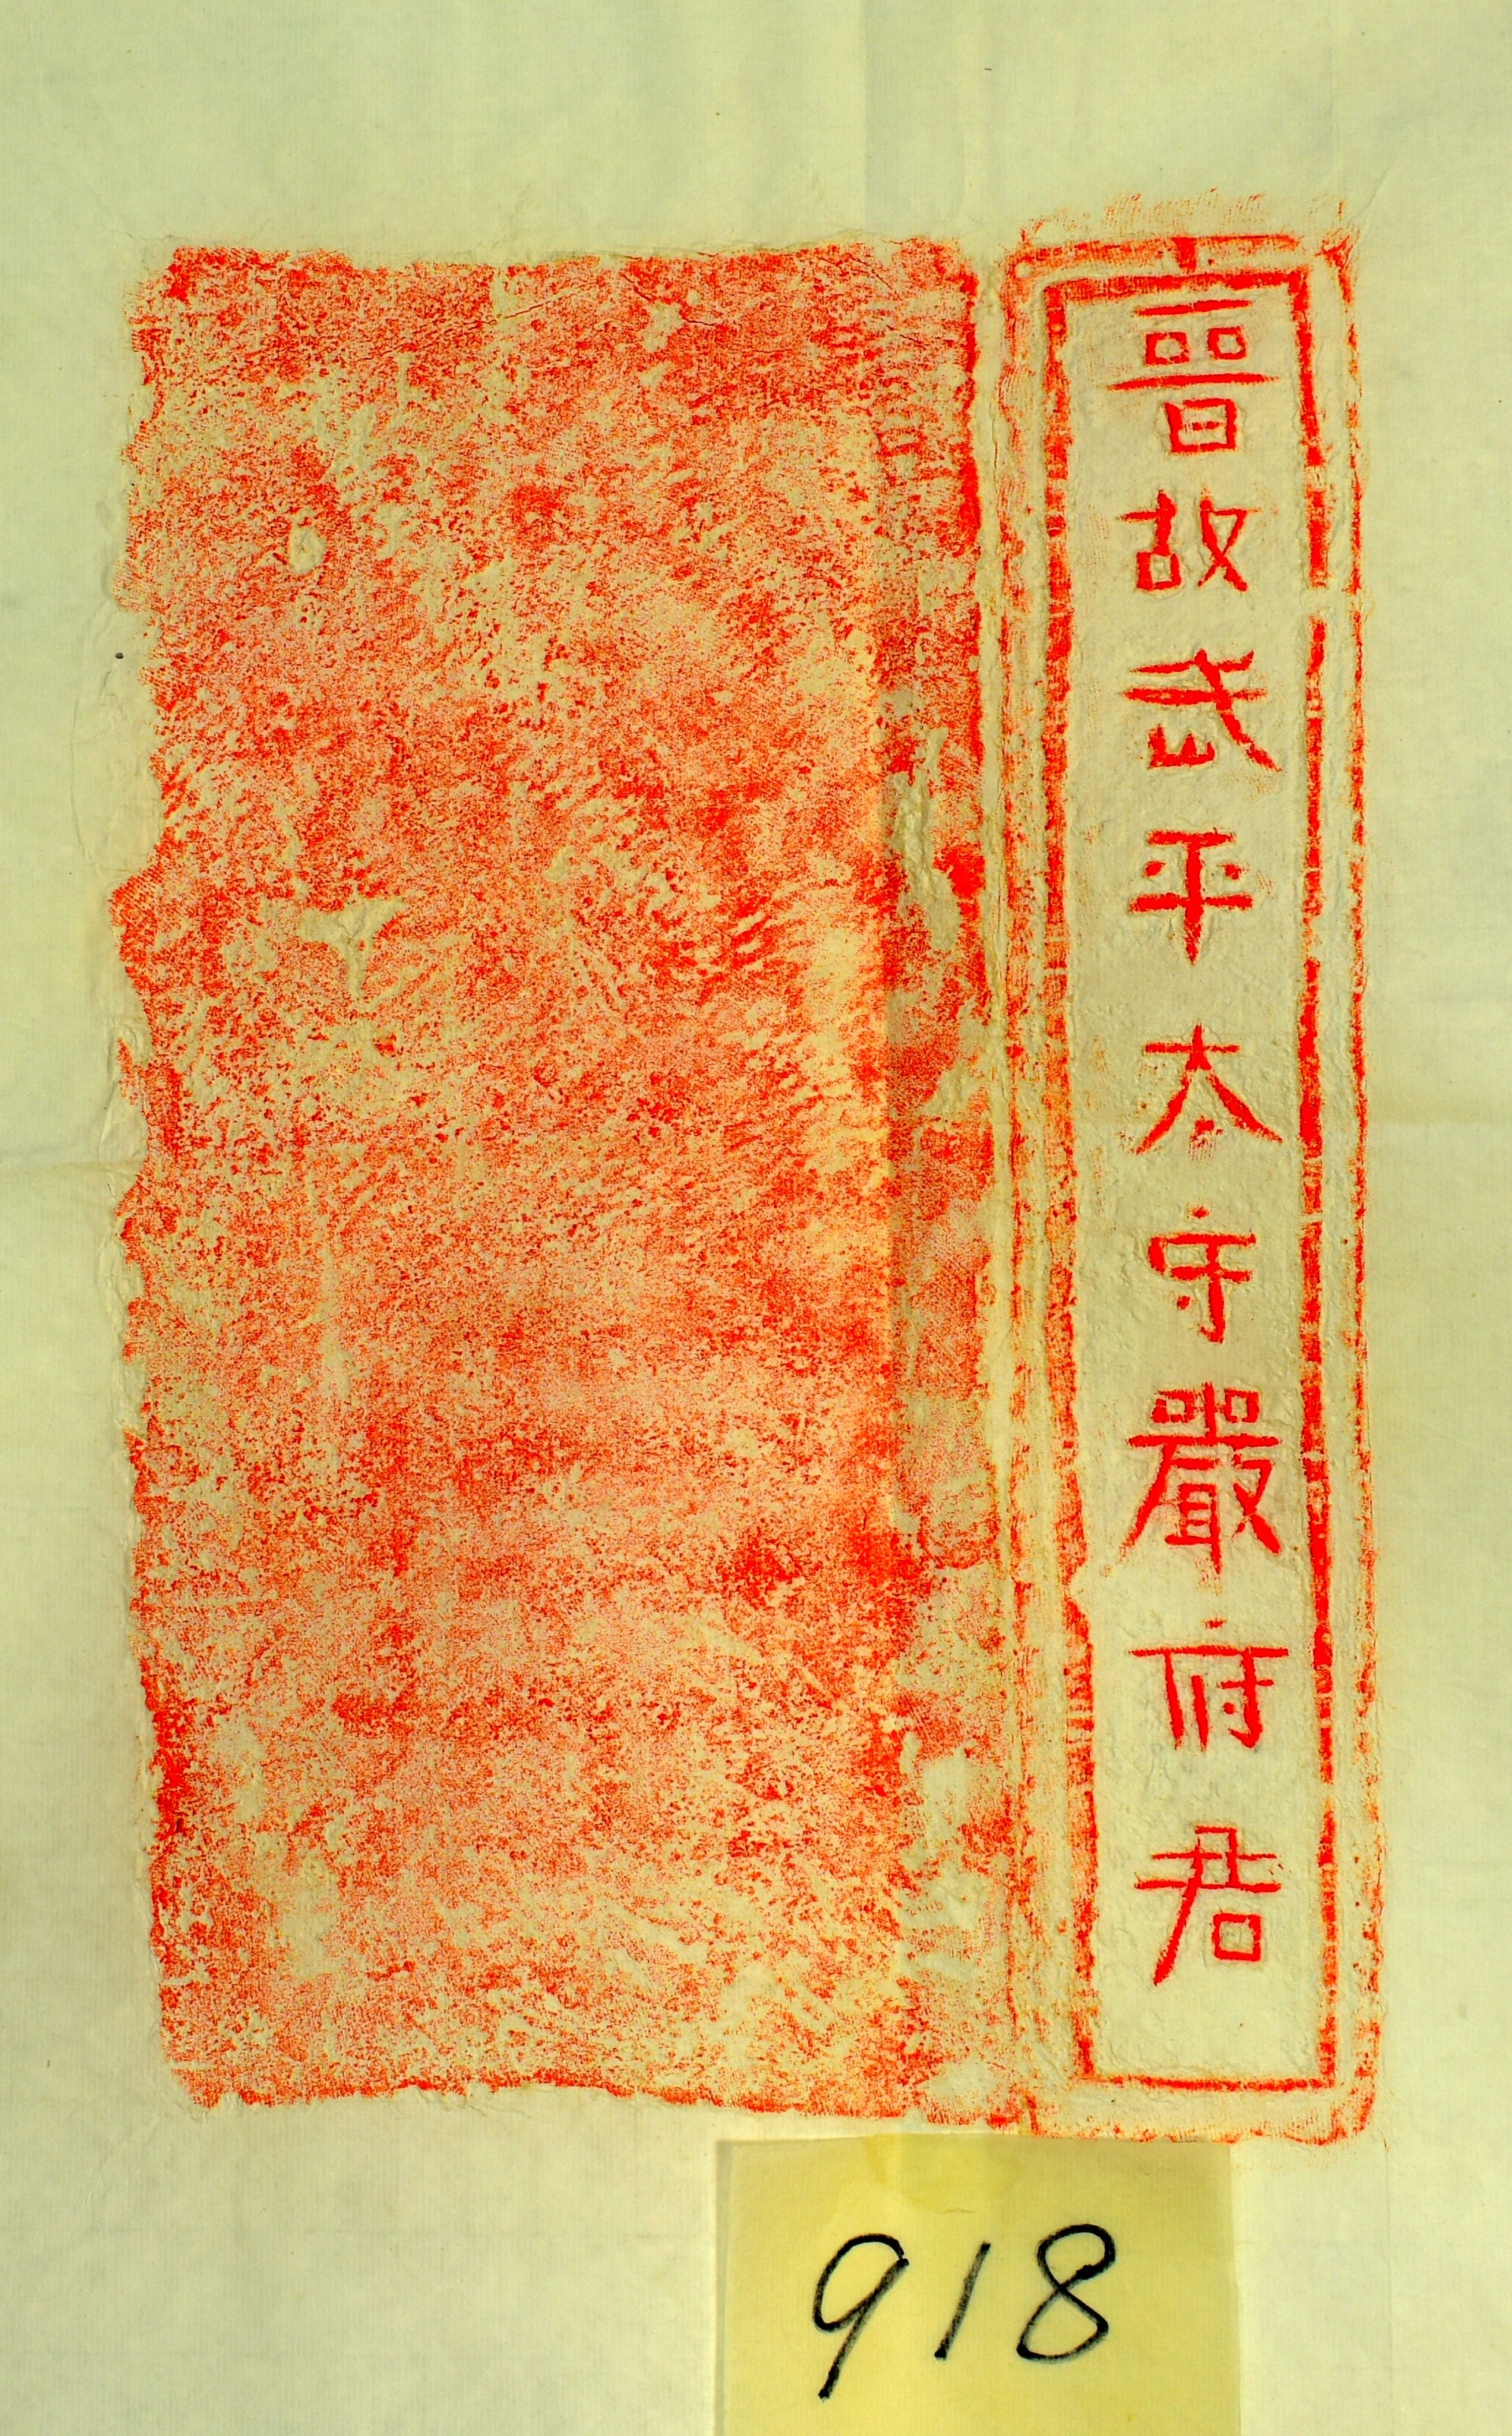 晉故武平太守嚴府君
918